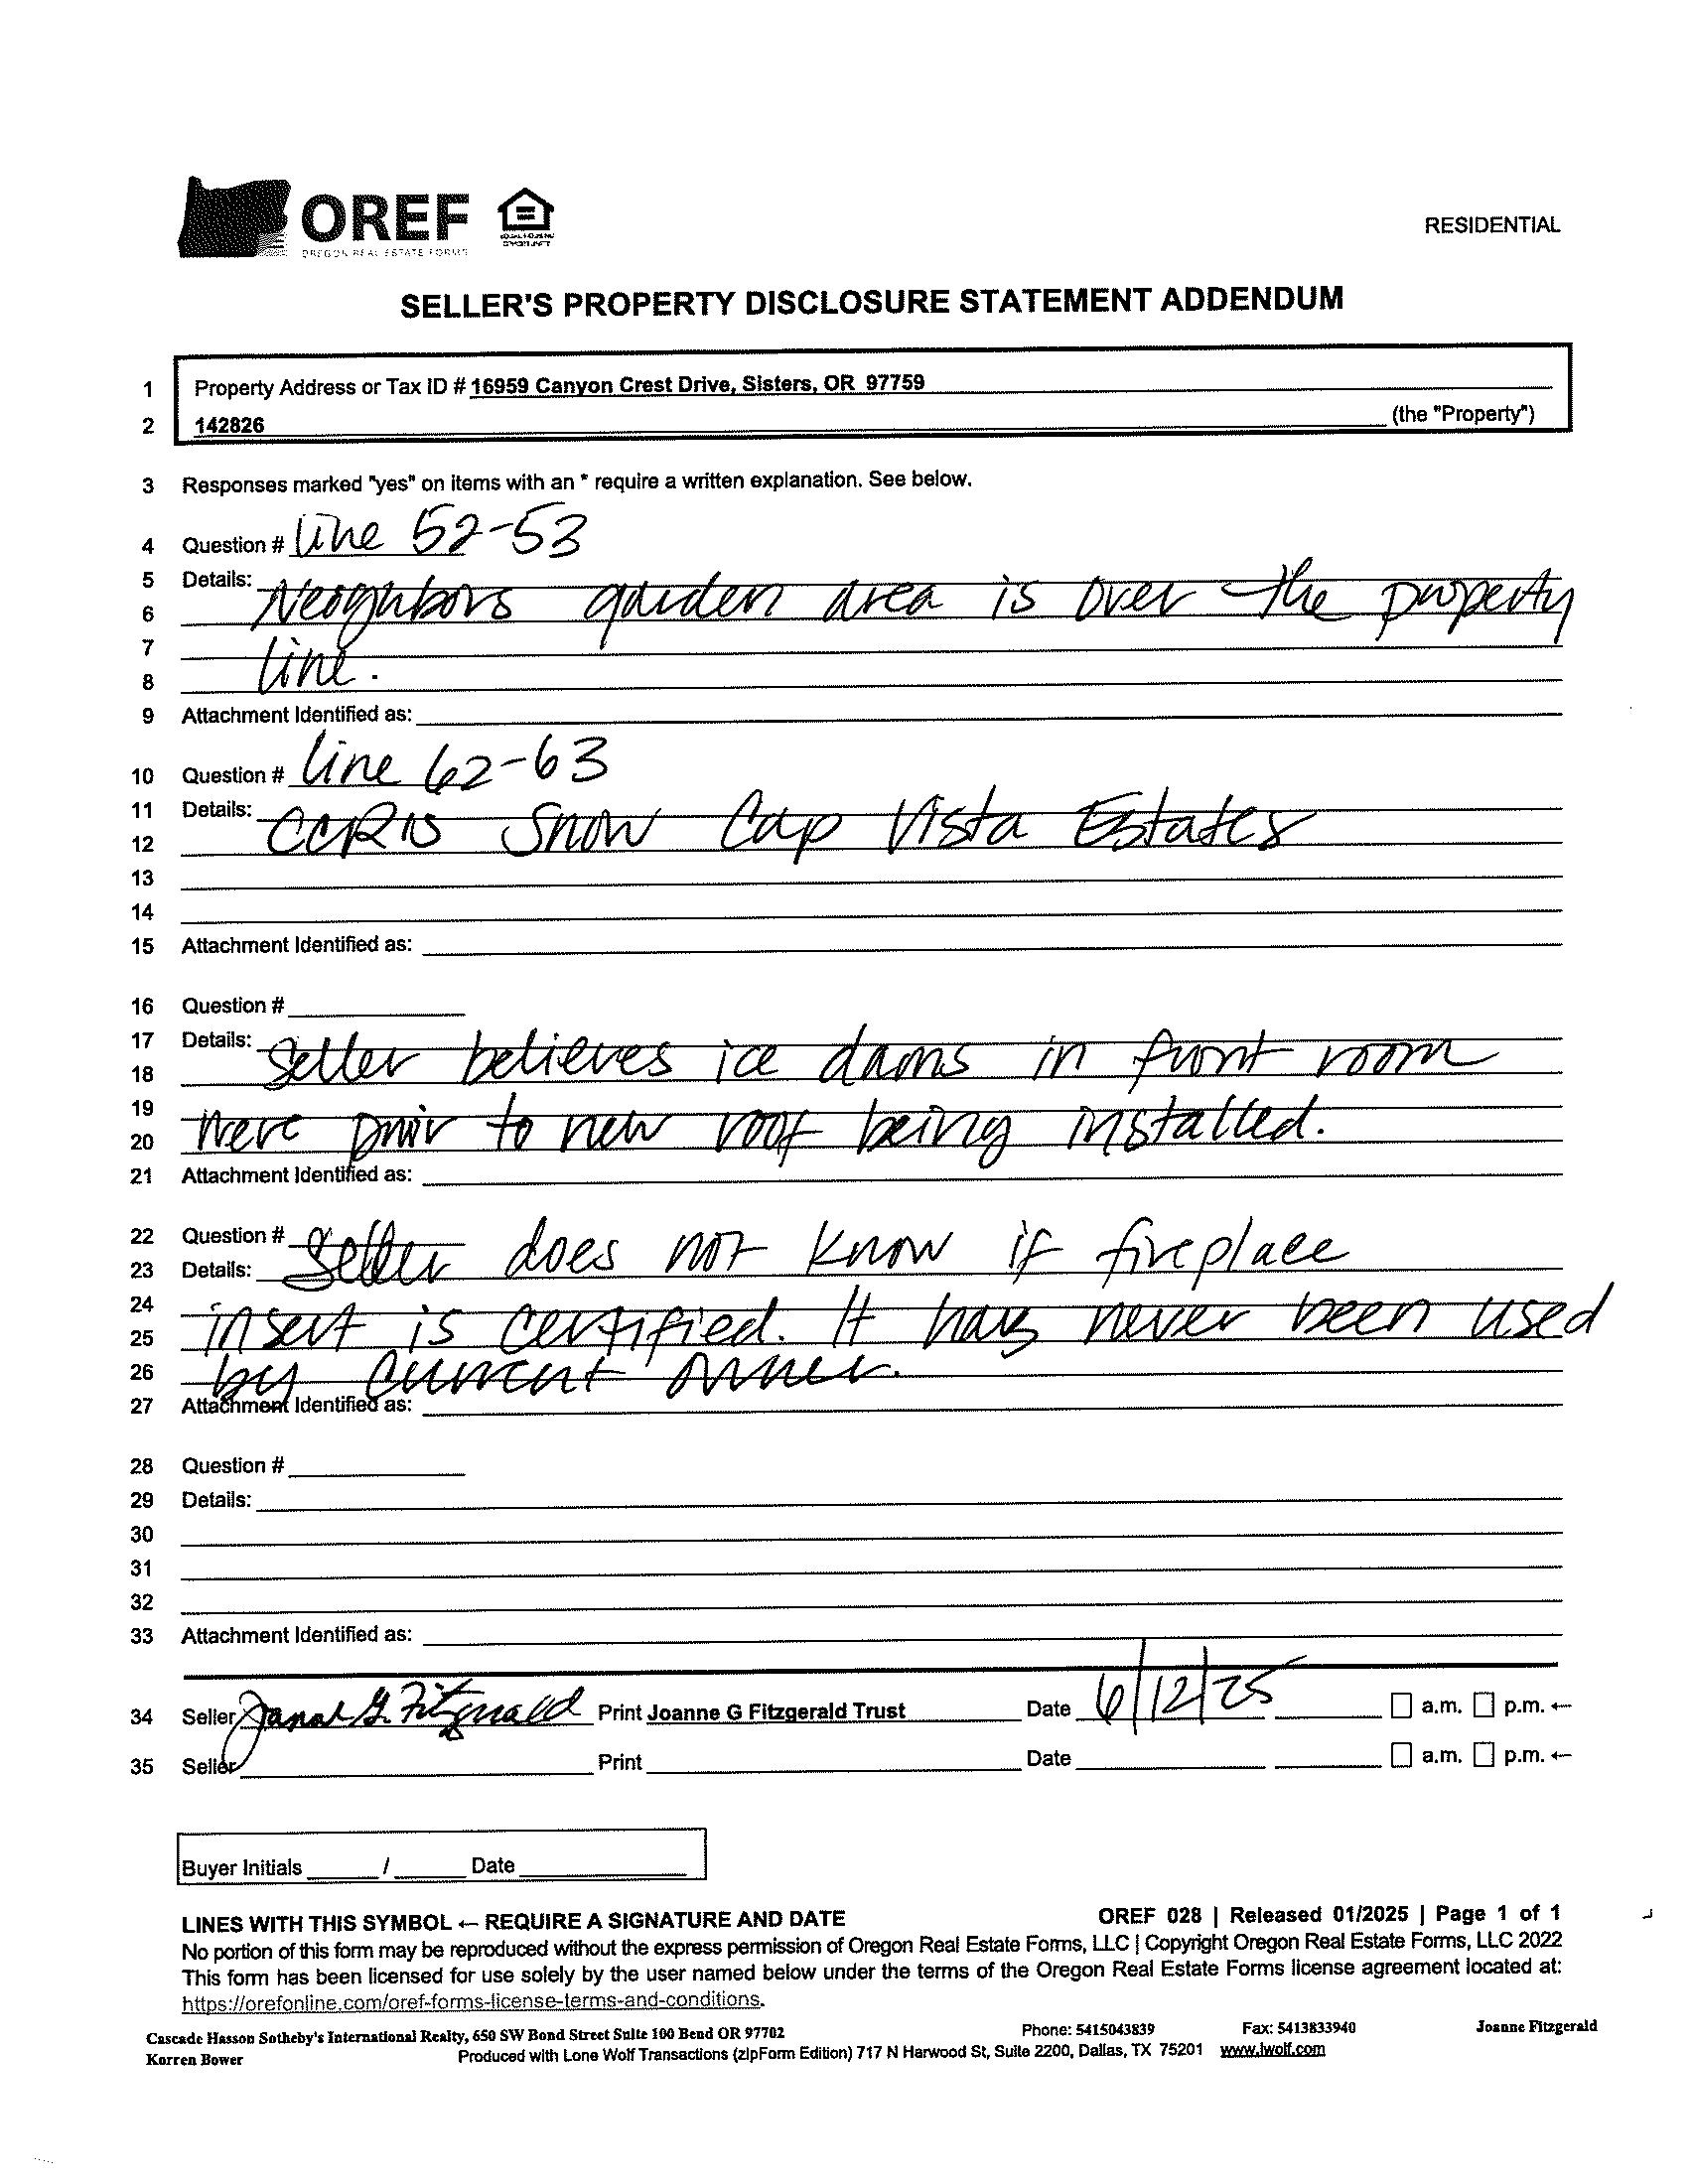 OREF
OREGON REAL ESTATE FORMS
RESIDENTIAL
SELLER'S PROPERTY DISCLOSURE STATEMENT ADDENDUM
1 Property Address or Tax ID # 16959 Canyon Crest Drive, Sisters, OR 97759
2 142826 (the "Property")
3 Responses marked "yes" on items with an * require a written explanation. See below.
4 Question # line 52-53
5 Details:
6 Neighbors garden area is over the property
7
8 line.
9 Attachment Identified as:
10 Question # line 62-63
11 Details:
12 CCR's Snow Cap Vista Estates
13
14
15 Attachment Identified as:
16 Question #
17 Details:
18 Seller believes ice dams in front room
19
20 were prior to new roof being installed.
21 Attachment Identified as:
22 Question #
23 Details: Seller does not know if fireplace
24
25 insert is certified. It has never been used
26 by current owner.
27 Attachment Identified as:
28 Question #
29 Details:
30
31
32
33 Attachment Identified as:
34 Seller G. Fitzgerald Print Joanne G Fitzgerald Trust Date 6/12/25 a.m. p.m. ←
35 Seller Print Date a.m. p.m. ←
Buyer Initials / Date
LINES WITH THIS SYMBOL ← REQUIRE A SIGNATURE AND DATE OREF 028 | Released 01/2025 | Page 1 of 1
No portion of this form may be reproduced without the express permission of Oregon Real Estate Forms, LLC | Copyright Oregon Real Estate Forms, LLC 2022
This form has been licensed for use solely by the user named below under the terms of the Oregon Real Estate Forms license agreement located at:
https://orefonline.com/oref-forms-license-terms-and-conditions.
Cascade Hasson Sotheby's International Realty, 650 SW Bond Street Suite 100 Bend OR 97702 Phone: 5415043839 Fax: 5413833940 Joanne Fitzgerald
Korren Bower Produced with Lone Wolf Transactions (zipForm Edition) 717 N Harwood St, Suite 2200, Dallas, TX 75201 www.lwolf.com